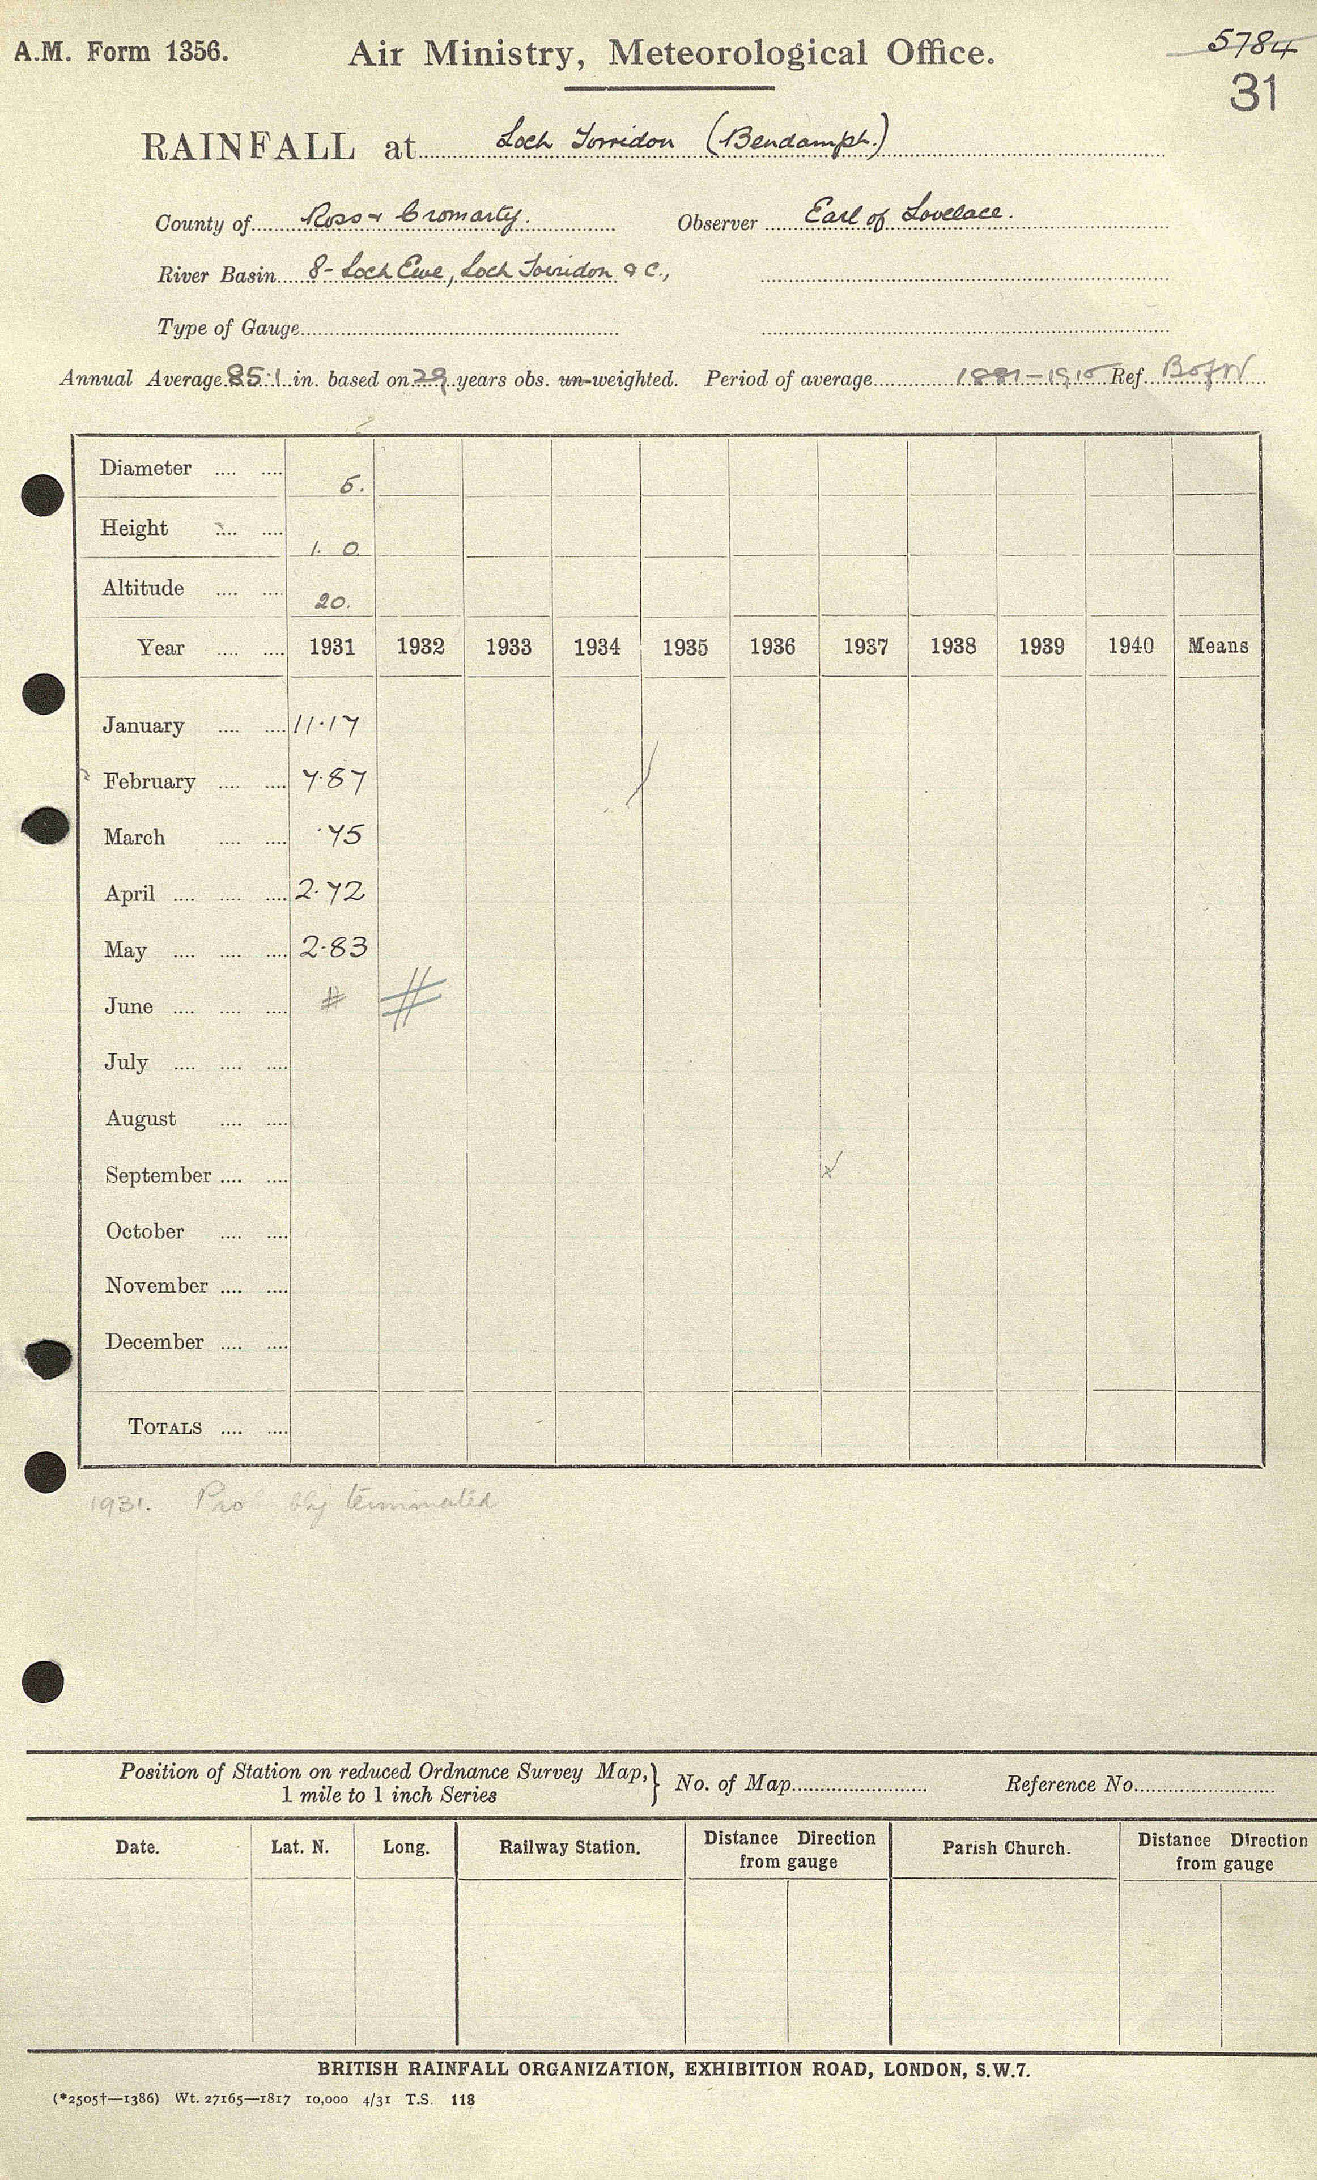 A.M. Form 1356.
Air Ministry, Meteorological Office.
5784
31
RAINFALL at Loch Torridon (Bendamph.)
County of Ross & Cromarty. Observer Earl of Lovelace.
River Basin 8- Loch Ewe, Loch Torridon & C.,
Type of Gauge
Annual Average 85.1 in. based on 29 years obs. un-weighted. Period of average 1881-1915 Ref. B of W
Diameter 5.
Height 1. 0.
Altitude 20.
Year 1931 1932 1933 1934 1935 1936 1937 1938 1939 1940 Means
January 11.17
February 7.87
March .75
April 2.72
May 2.83
June # #
July
August
September
October
November
December
TOTALS
1931. Probably terminated
Position of Station on reduced Ordnance Survey Map, } No. of Map Reference No.
1 mile to 1 inch Series
Date. Lat. N. Long. Railway Station. Distance Direction from gauge Parish Church. Distance Direction from gauge
BRITISH RAINFALL ORGANIZATION, EXHIBITION ROAD, LONDON, S.W.7.
(*2505†—1386) Wt. 27165—1817 10,000 4/31 T.S. 118